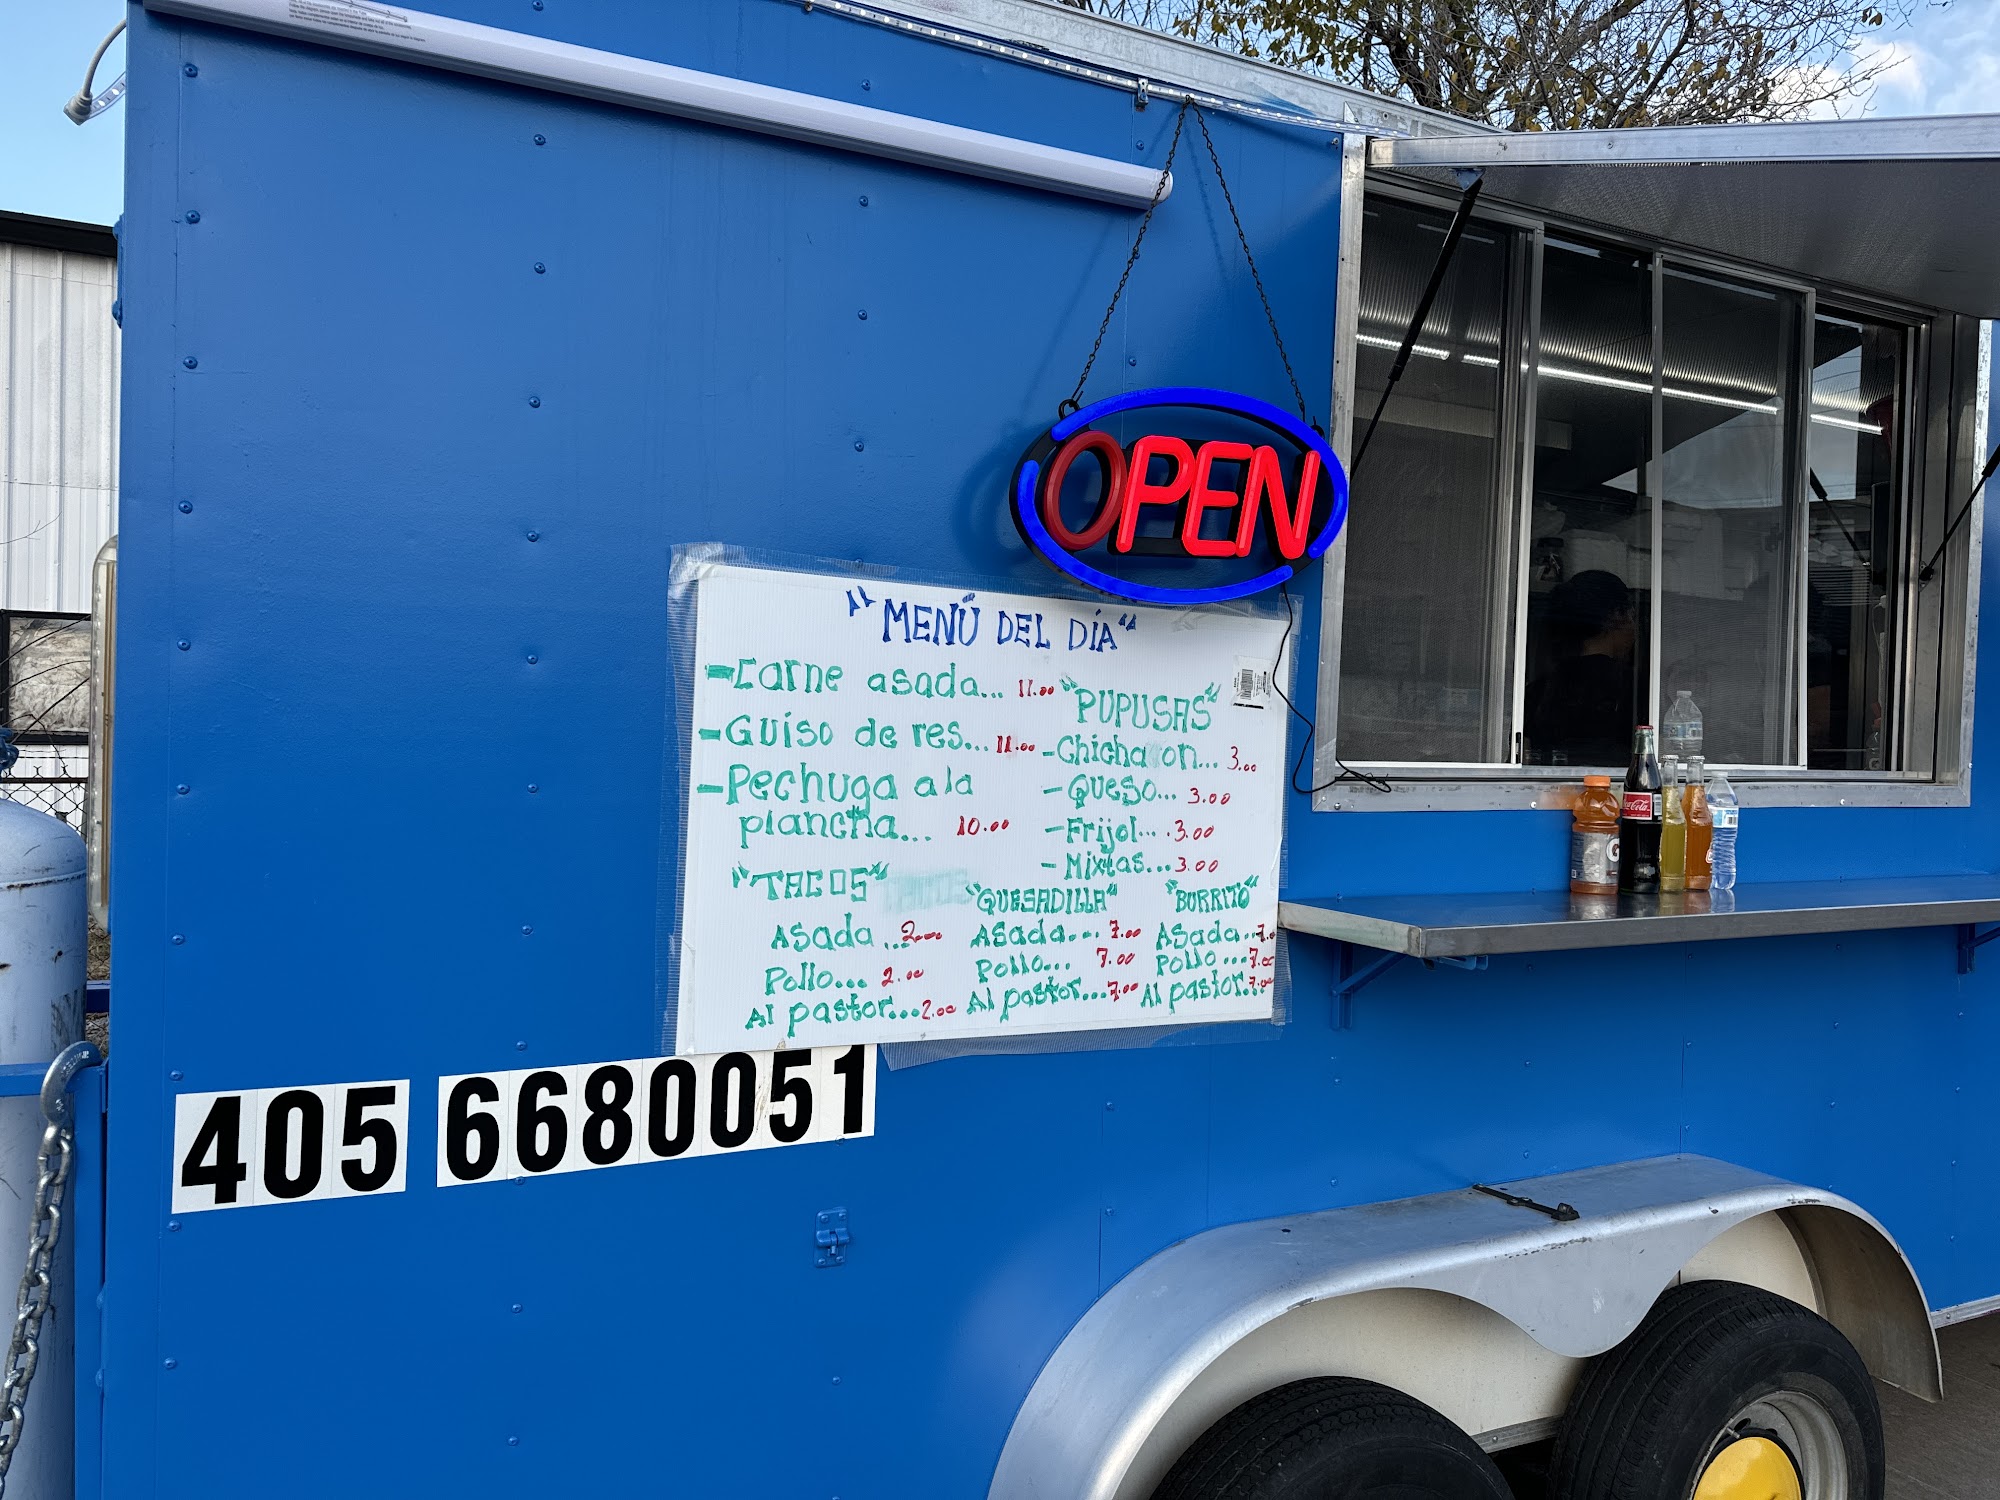 OPEN
"MENÚ DEL DÍA"
-Carne asada... 11.00
-Guíso de res... 11.00
-Pechuga a la
plancha... 10.00
"PUPUSAS"
-Chicharon... 3.00
-Queso... 3.00
-Frijol... .3.00
-Mixtas...3.00
"TACOS"
Asada ...2.00
Pollo... 2.00
Al pastor...2.00
"QUESADILLA"
Asada... 7.00
Pollo... 7.00
Al pastor...7.00
"BURRITO"
Asada...7.00
Pollo...7.00
Al pastor...7.00
405 6680051
Coca-Cola